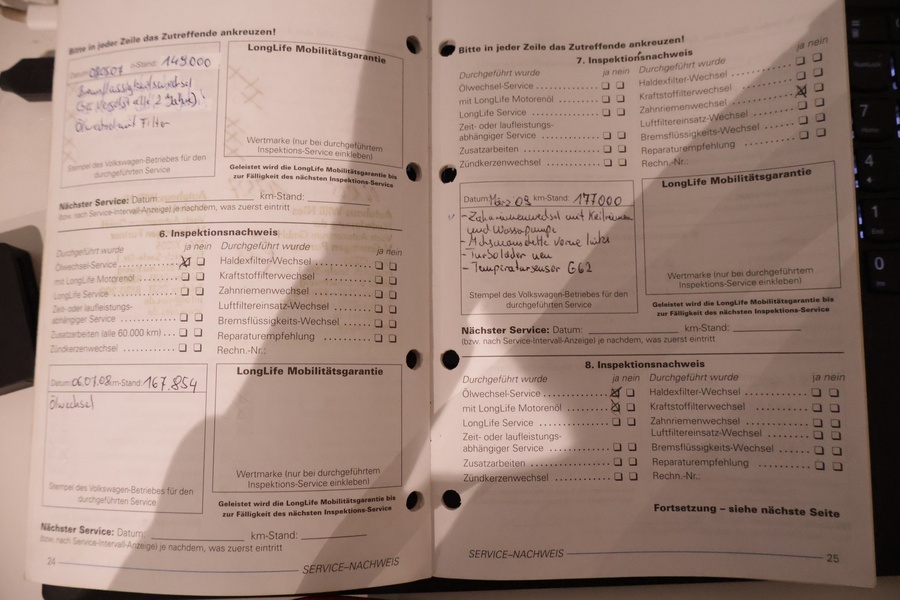 Bitte in jeder Zeile das Zutreffende ankreuzen!
Datum: km-Stand: 149.000
Bremsflüssigkeitswechsel
alle 2 Jahre)!
Ölwechsel mit Filter
Stempel des Volkswagen-Betriebes für den
durchgeführten Service
LongLife Mobilitätsgarantie
Wertmarke (nur bei durchgeführtem
Inspektions-Service einkleben)
Geleistet wird die LongLife Mobilitätsgarantie bis
zur Fälligkeit des nächsten Inspektions-Service
Nächster Service: Datum: km-Stand:
(bzw. nach Service-Intervall-Anzeige) je nachdem, was zuerst eintritt
6. Inspektionsnachweis
Durchgeführt wurde ja nein
Ölwechsel-Service
mit LongLife Motorenöl
LongLife Service
Zeit- oder laufleistungs-
abhängiger Service
Zusatzarbeiten (alle 60.000 km)
Zündkerzenwechsel
Durchgeführt wurde ja nein
Haldexfilter-Wechsel
Kraftstoffilterwechsel
Zahnriemenwechsel
Luftfiltereinsatz-Wechsel
Bremsflüssigkeits-Wechsel
Reparaturempfehlung
Rechn.-Nr.:
Datum: 06.07.08 km-Stand: 167.854
Ölwechsel
Stempel des Volkswagen-Betriebes für den
durchgeführten Service
LongLife Mobilitätsgarantie
Wertmarke (nur bei durchgeführtem
Inspektions-Service einkleben)
Geleistet wird die LongLife Mobilitätsgarantie bis
zur Fälligkeit des nächsten Inspektions-Service
Nächster Service: Datum: km-Stand:
(bzw. nach Service-Intervall-Anzeige) je nachdem, was zuerst eintritt
24 SERVICE–NACHWEIS
Bitte in jeder Zeile das Zutreffende ankreuzen!
7. Inspektionsnachweis
Durchgeführt wurde ja nein
Ölwechsel-Service
mit LongLife Motorenöl
LongLife Service
Zeit- oder laufleistungs-
abhängiger Service
Zusatzarbeiten
Zündkerzenwechsel
Durchgeführt wurde ja nein
Haldexfilter-Wechsel
Kraftstoffilterwechsel
Zahnriemenwechsel
Luftfiltereinsatz-Wechsel
Bremsflüssigkeits-Wechsel
Reparaturempfehlung
Rechn.-Nr.:
Datum: März 09 km-Stand: 177000
- Zahnriemenwechsel mit Keilriemen
und Wasserpumpe
- Achsmanschette vorne links
- Turbolader neu
- Temperatursensor G62
Stempel des Volkswagen-Betriebes für den
durchgeführten Service
LongLife Mobilitätsgarantie
Wertmarke (nur bei durchgeführtem
Inspektions-Service einkleben)
Geleistet wird die LongLife Mobilitätsgarantie bis
zur Fälligkeit des nächsten Inspektions-Service
Nächster Service: Datum: km-Stand:
(bzw. nach Service-Intervall-Anzeige) je nachdem, was zuerst eintritt
8. Inspektionsnachweis
Durchgeführt wurde ja nein
Ölwechsel-Service
mit LongLife Motorenöl
LongLife Service
Zeit- oder laufleistungs-
abhängiger Service
Zusatzarbeiten
Zündkerzenwechsel
Durchgeführt wurde ja nein
Haldexfilter-Wechsel
Kraftstoffilterwechsel
Zahnriemenwechsel
Luftfiltereinsatz-Wechsel
Bremsflüssigkeits-Wechsel
Reparaturempfehlung
Rechn.-Nr.:
Fortsetzung – siehe nächste Seite
SERVICE–NACHWEIS 25
7
4
1
End
0